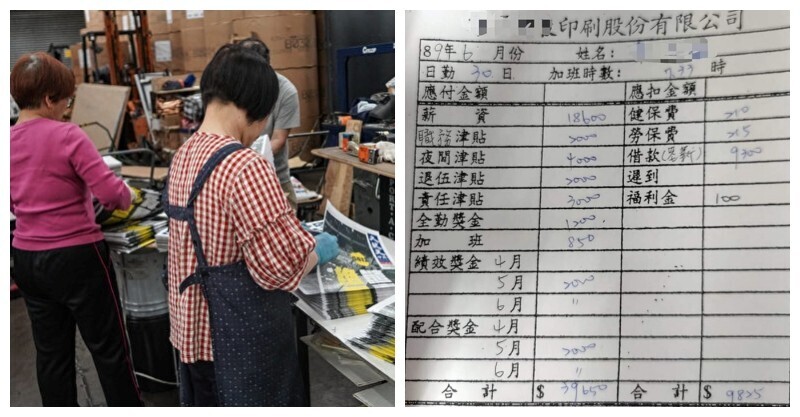 印刷股份有限公司
89年6月份 姓名:
日勤 30日 加班時數: 時
應付金額 應扣金額
薪 資 18600 健保費 210
職務津貼 2000 勞保費 215
夜間津貼 4000 借款 9300
退伍津貼 2000 遲到
責任津貼 3000 福利金 100
全勤獎金 1200.
加 班 850
績效獎金 4月
5月 2000
6月 "
配合獎金 4月
5月 2000
6月 "
合 計 $ 39650 合 計 $ 9825